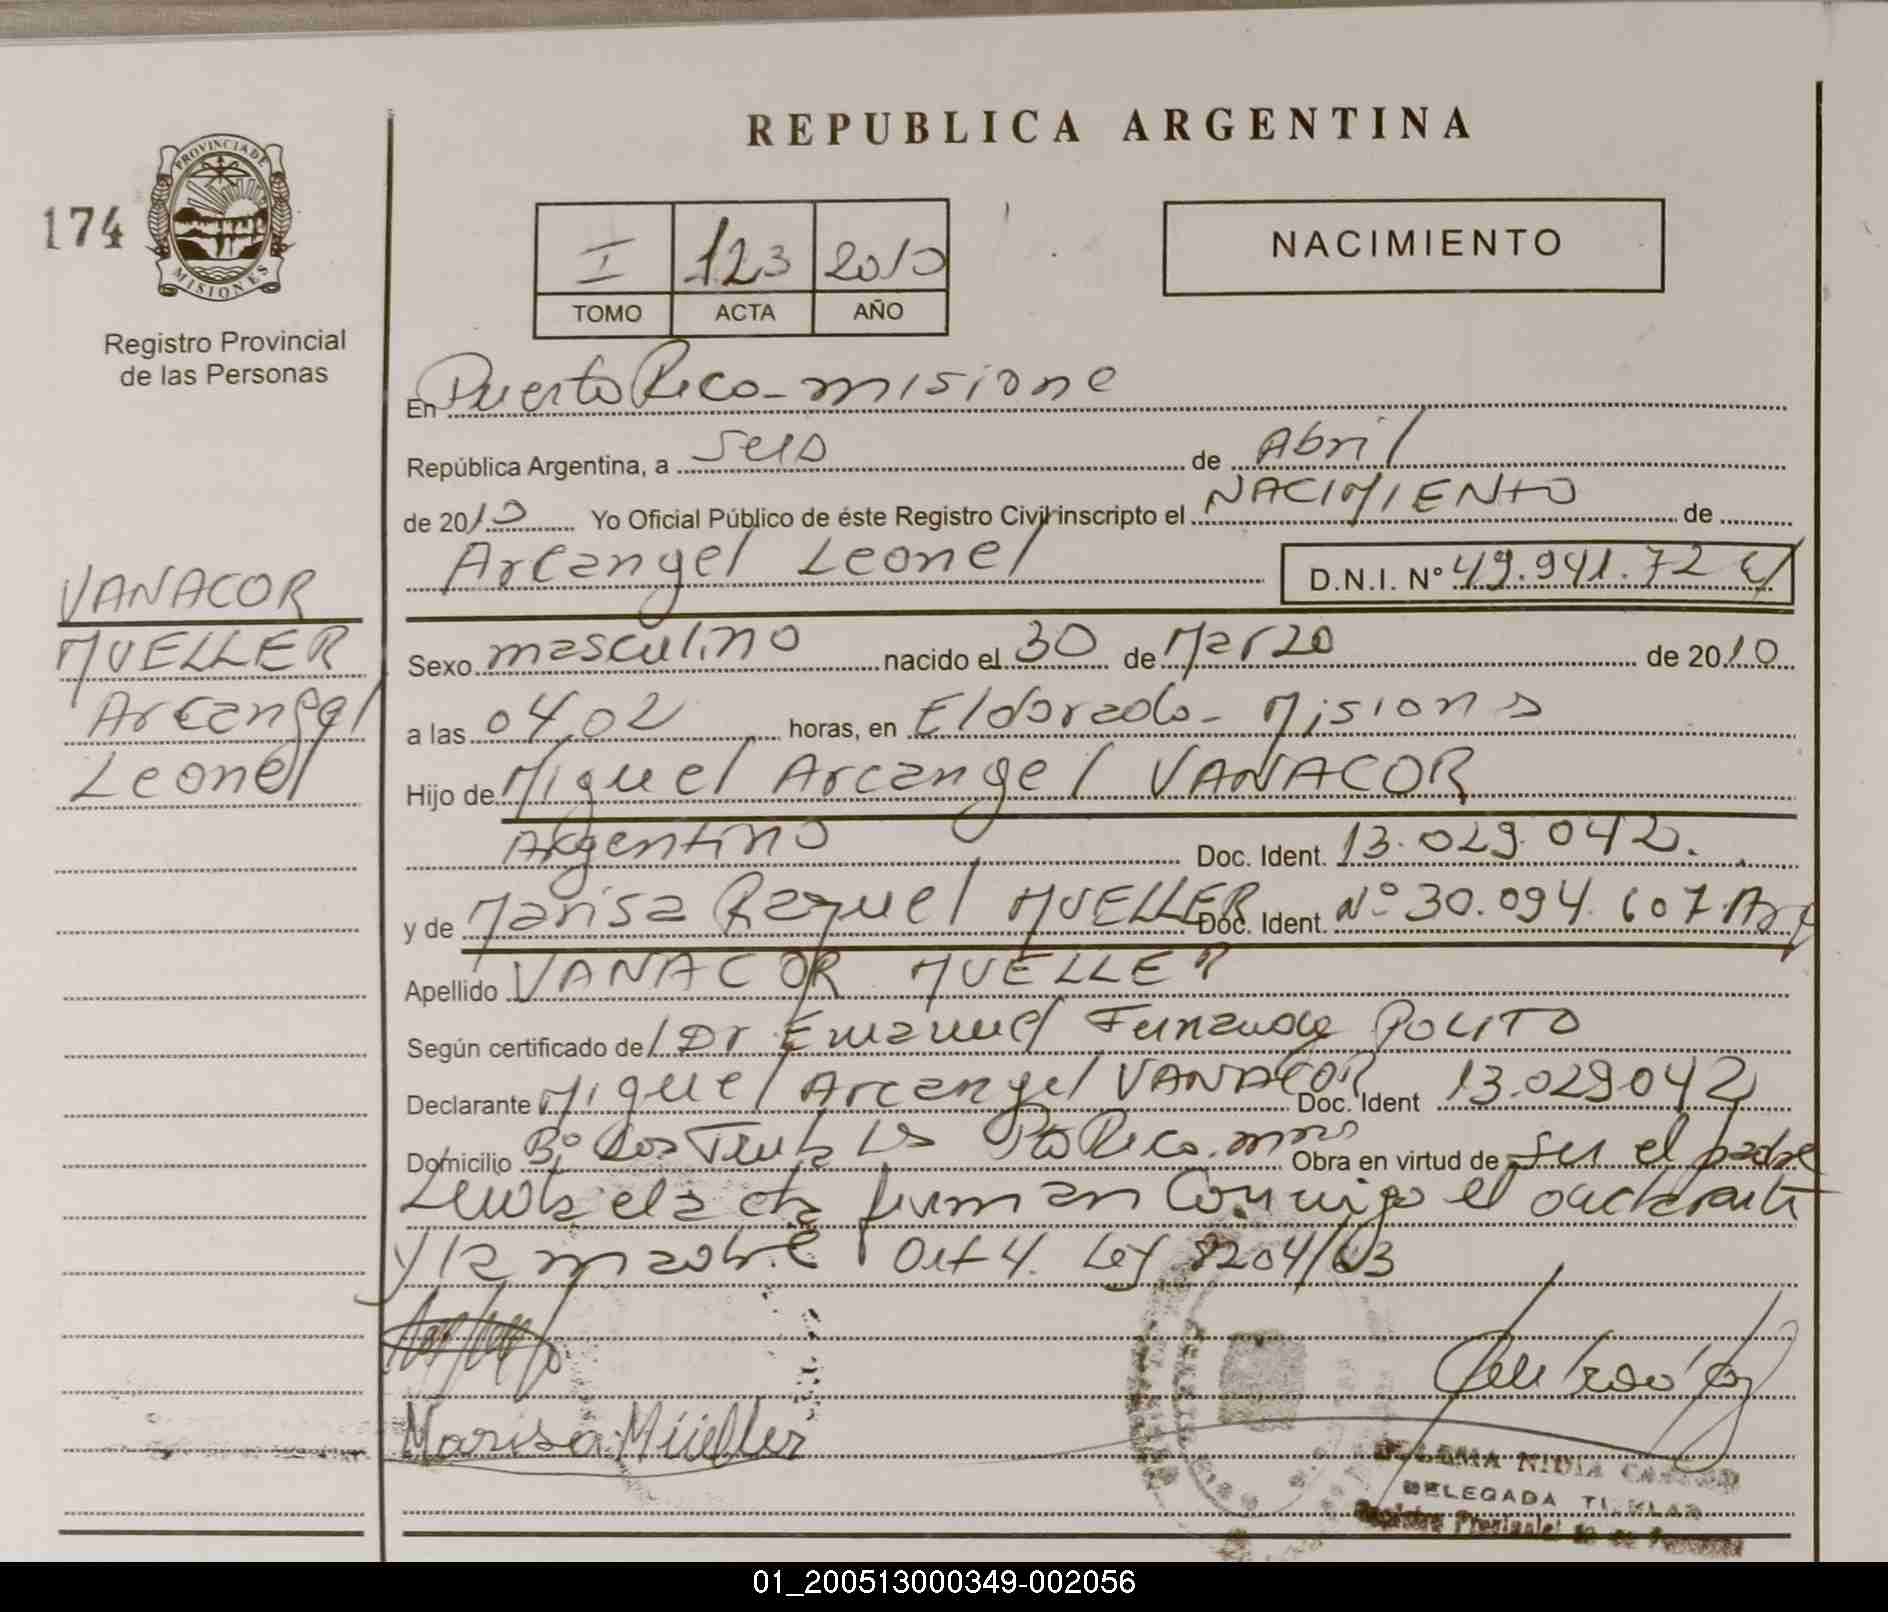 REPUBLICA ARGENTINA
174
PROVINCIA DE
MISIONES
Registro Provincial
de las Personas
I 123 2010
TOMO ACTA AÑO
NACIMIENTO
En Puerto Rico - misione
República Argentina, a seis de Abril
de 2010 Yo Oficial Público de éste Registro Civil inscripto el NACIMIENTO de
Arcangel Leonel D.N.I. Nº 49.941.72
VANACOR
MUELLER
Arcangel
Leonel
Sexo masculino nacido el 30 de Marzo de 2010
a las 04,02 horas, en Eldorado - Misions
Hijo de Miguel Arcangel VANACOR
Argentino Doc. Ident. 13.029.042.
y de Marisa Raquel MUELLER Doc. Ident. Nº 30.094.607. Arg
Apellido VANACOR MUELLER
Según certificado del Dr Emanuel Fernando POLITO
Declarante Miguel Arcangel VANACOR Doc. Ident 13.029042
Domicilio Bº Los Pto Rico. mnes Obra en virtud de ser el padre
Leida el acta firman conmigo el declarante
y la madre Art 4. Ley 8204/63
Marisa Müeller
NIDIA
DELEGADA TITULAR
Registro Provincial de las Personas
01_200513000349-002056